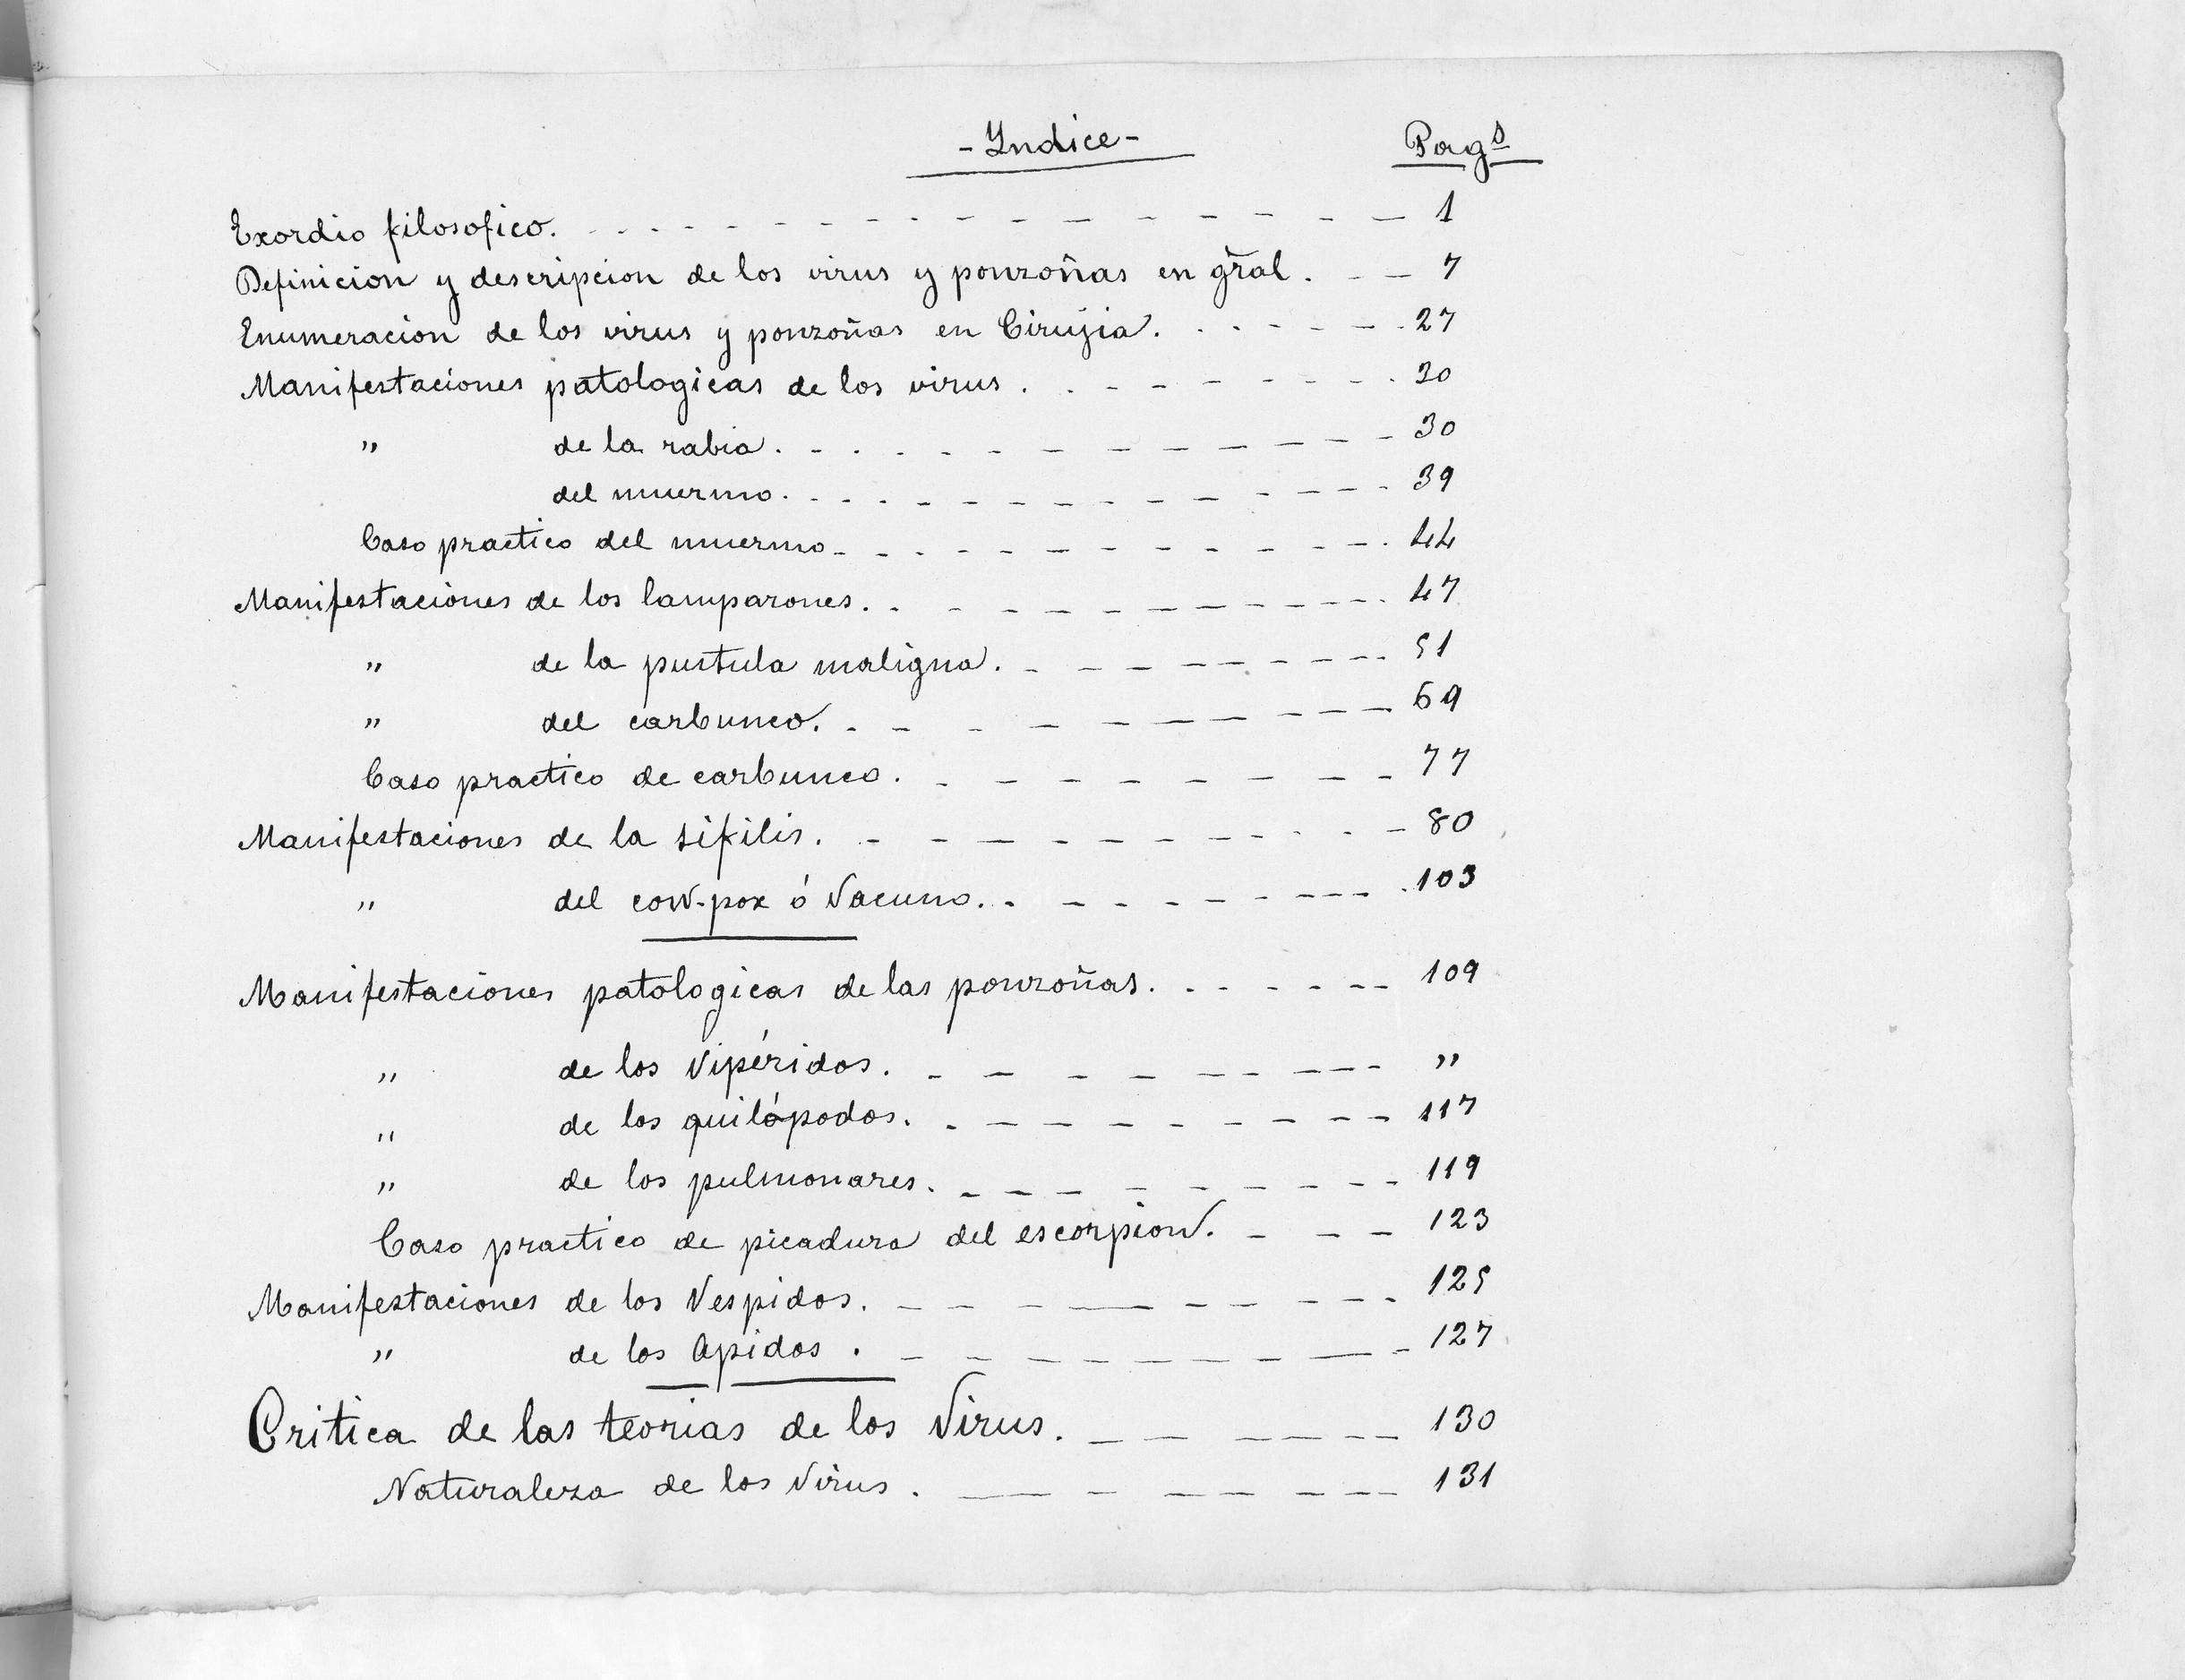 - Yndice -   Pag.s
Exordio filosofico. - - - - - - - - - - 1
Definicion y descripcion de los virus y ponzoñas en gral. - - 7
Enumeracion de los virus y ponzoñas en Cirujia. - - - - - 27
Manifestaciones patologicas de los virus. - - - - - - 30
" de la rabia. - - - - - - - - - - 30
del muermo. - - - - - - - - - - 39
Caso practico del muermo - - - - - - - - - - 44
Manifestaciones de los lamparones. - - - - - - - - - 47
" de la pustula maligna. - - - - - - - - 51
" del carbunco. - - - - - - - - - 69
Caso practico de carbunco. - - - - - - - - 77
Manifestaciones de la sifilis. - - - - - - - - - 80
" del cow-pox ó Vacuno. - - - - - - - - 103
Manifestaciones patologicas de las ponzoñas. - - - - - 109
" de los Vipéridos. - - - - - - - - - "
" de los quilópodos. - - - - - - - - - 117
" de los pulmonares. - - - - - - - - 119
Caso practico de picadura del escorpion. - - - 123
Manifestaciones de los Vespidos. - - - - - - - - 125
" de los Apidos. - - - - - - - - - 127
Critica de las teorias de los Virus. - - - - - - 130
Naturaleza de los Virus. - - - - - - - 131